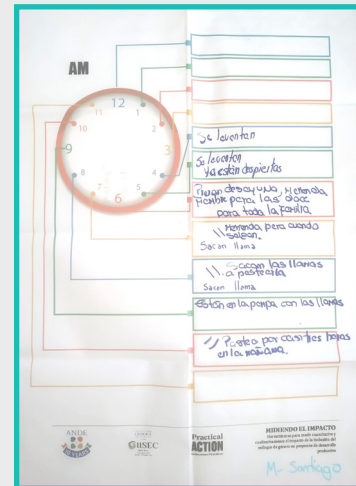 AM
12
11
1
10
2
9
3
8
4
7
5
6
Se levantan
Se levantan
Ya están despiertas
para las doce
para toda la familia
" Merienda para cuando
salgan.
Sacan llama
" Sacan las llamas
a pastearla
Sacan llama
Están en la pampa con las llamas
" Pasteo por casi tres horas
en la mañana.
ANDE
GIISEC
Practical
ACTION
MIDIENDO EL IMPACTO
M- Santiago